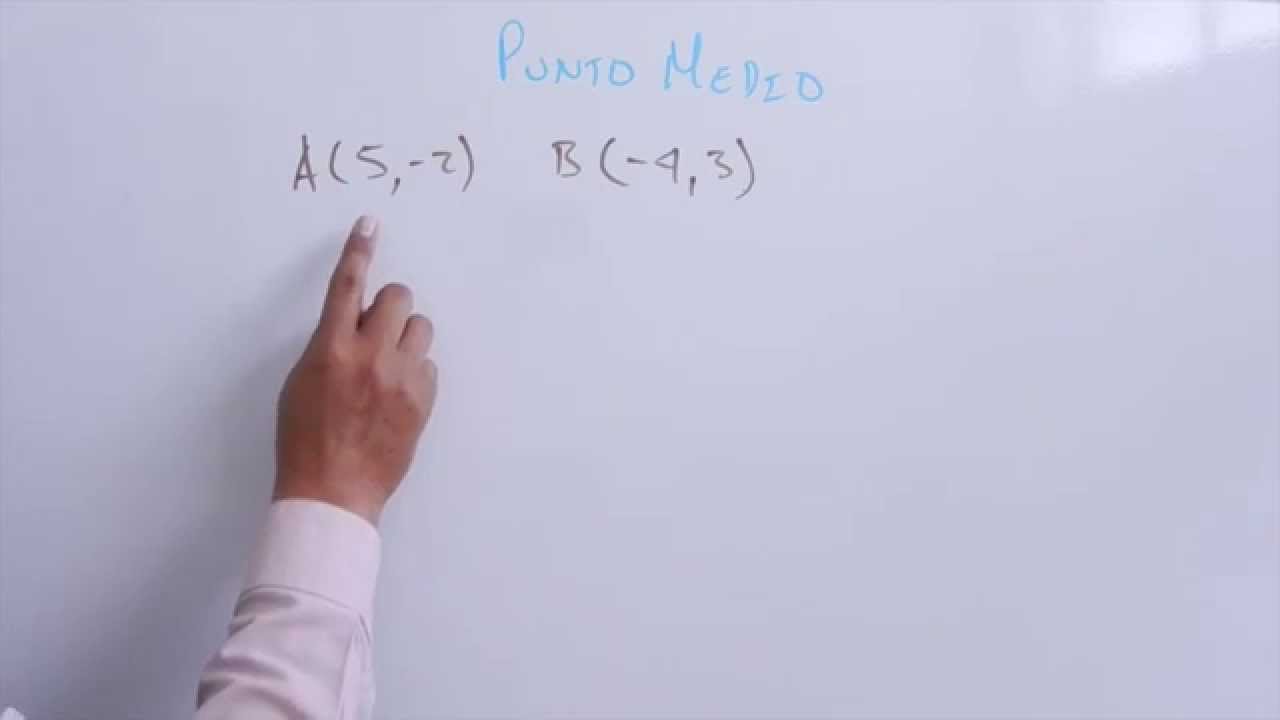 PUNTO MEDIO
A(5,-2) B(-4,3)